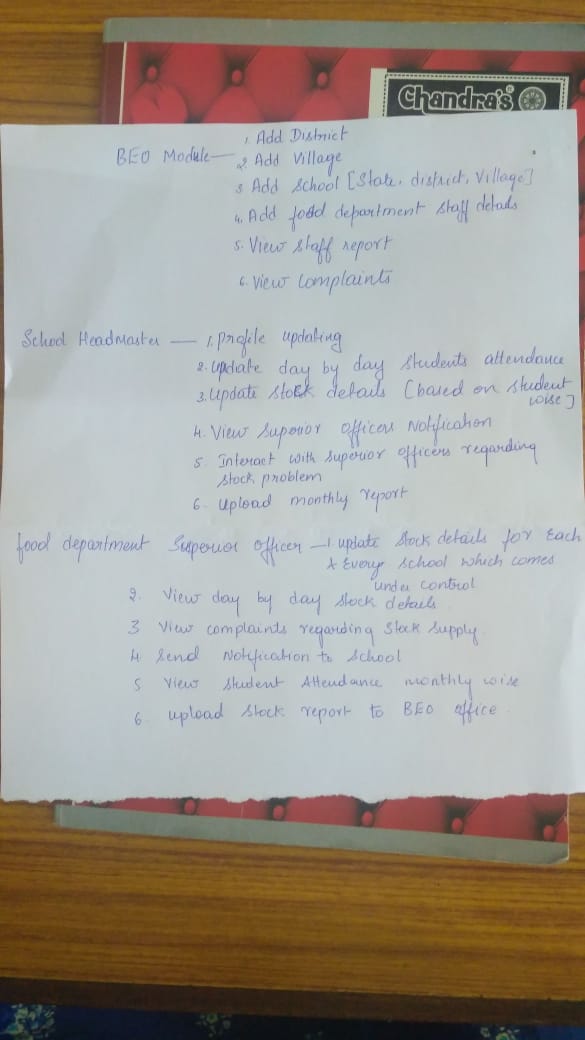 Chandra's®
1. Add District
BEO Module — 2. Add Village
3 Add School [State, district, Village]
4. Add food department staff details
5. View staff report
6. View Complaints
School Headmaster — 1. Profile updating
2. update day by day students attendance
3. Update stock details [based on student
wise]
4. View Superior officers Notification
5. Interact with superior officers regarding
stock problem
6. Upload monthly report
food department Superior Officer — 1 update stock details for Each
& Every school which comes
under control
2. View day by day stock details
3 View complaints regarding stock supply
4 Send Notification to School
5 View student Attendance monthly wise
6. upload stock report to BEO office.